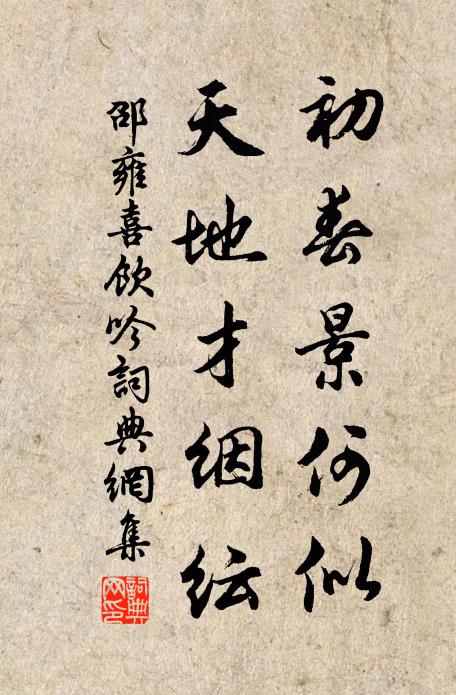 初春景何似
天地才絪紜
邵雍喜飲吟詞典網集
詞典
网印